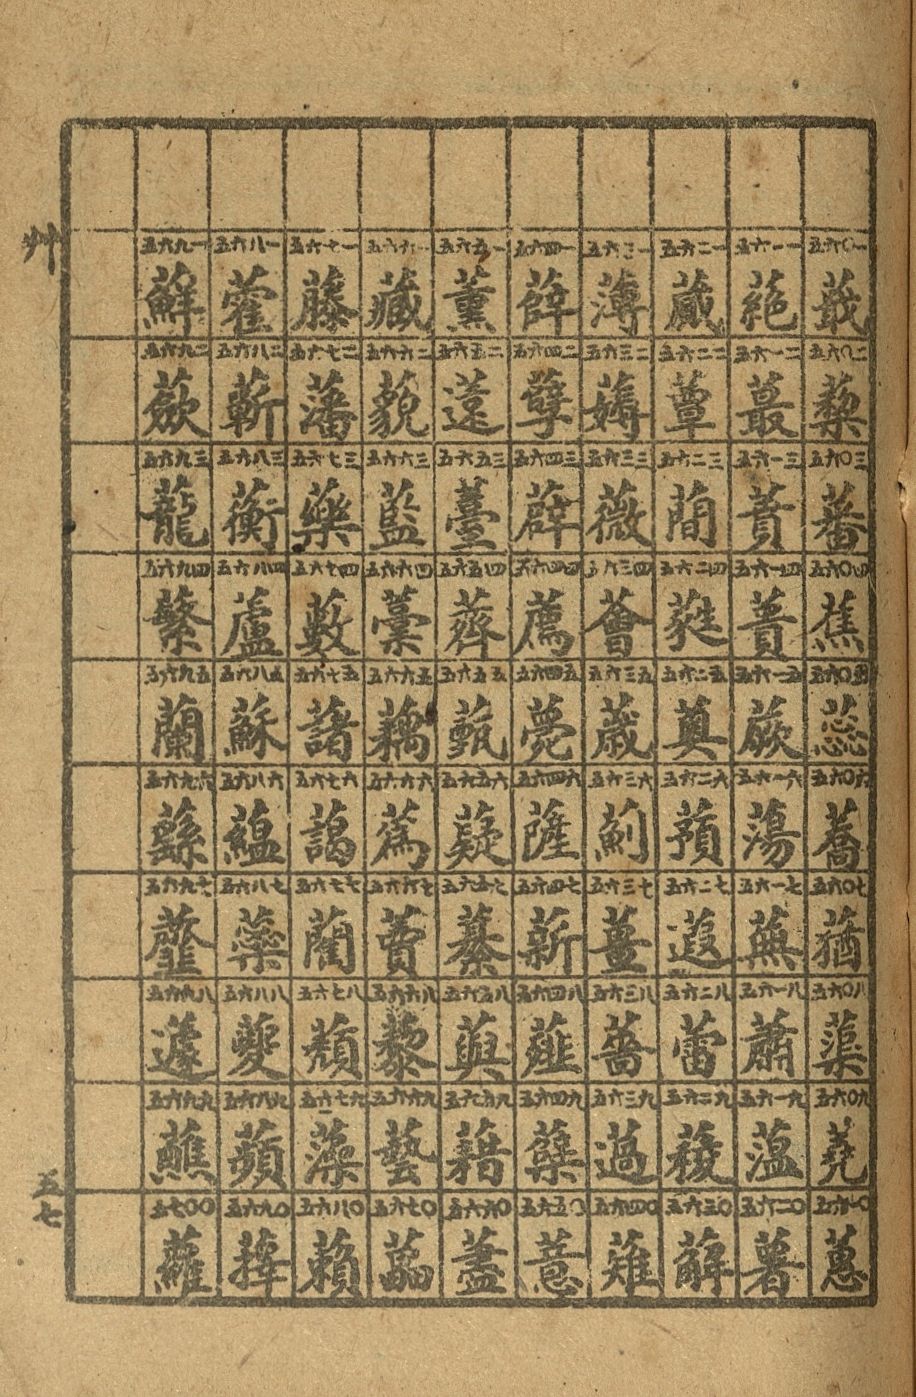 艸
五六〇一 蕺
五六〇二 藜
五六〇三 蕃
五六〇四 蕉
五六〇五 蕊
五六〇六 蕎
五六〇七 蕕
五六〇八 蕖
五六〇九 蕘
五六一〇 蕙
五六一一 蕝
五六一二 蕞
五六一三 蕡
五六一四 蕢
五六一五 蕨
五六一六 蕩
五六一七 蕪
五六一八 蕭
五六一九 薀
五六二〇 薯
五六二一 蕆
五六二二 蕈
五六二三 蕑
五六二四 蕤
五六二五 薁
五六二六 蕷
五六二七 蕸
五六二八 蕾
五六二九 薐
五六三〇 薢
五六三一 薄
五六三二 薅
五六三三 薇
五六三四 薈
五六三五 薉
五六三六 薊
五六三七 薑
五六三八 薔
五六三九 薖
五六四〇 薙
五六四一 薛
五六四二 孽
五六四三 薜
五六四四 薦
五六四五 薨
五六四六 薩
五六四七 薪
五六四八 薤
五六四九 蘖
五六五〇 薏
五六五一 薰
五六五二 薳
五六五三 薹
五六五四 薺
五六五五 薽
五六五六 薿
五六五七 藄
五六五八 藇
五六五九 藉
五六六〇 藎
五六六一 藏
五六六二 藐
五六六三 藍
五六六四 藁
五六六五 藕
五六六六 蔿
五六六七 藚
五六六八 藜
五六六九 藝
五六七〇 藟
五六七一 藤
五六七二 藩
五六七三 藥
五六七四 藪
五六七五 藷
五六七六 藹
五六七七 藺
五六七八 蘈
五六七九 藻
五六八〇 藾
五六八一 藿
五六八二 蘄
五六八三 蘅
五六八四 蘆
五六八五 蘇
五六八六 蘊
五六八七 蘂
五六八八 䕫
五六八九 蘋
五六九〇 蘀
五六九一 蘚
五六九二 蘞
五六九三 蘢
五六九四 蘩
五六九五 蘭
五六九六 蘨
五六九七 虀
五六九八 蘧
五六九九 蘸
五七〇〇 蘿
五七